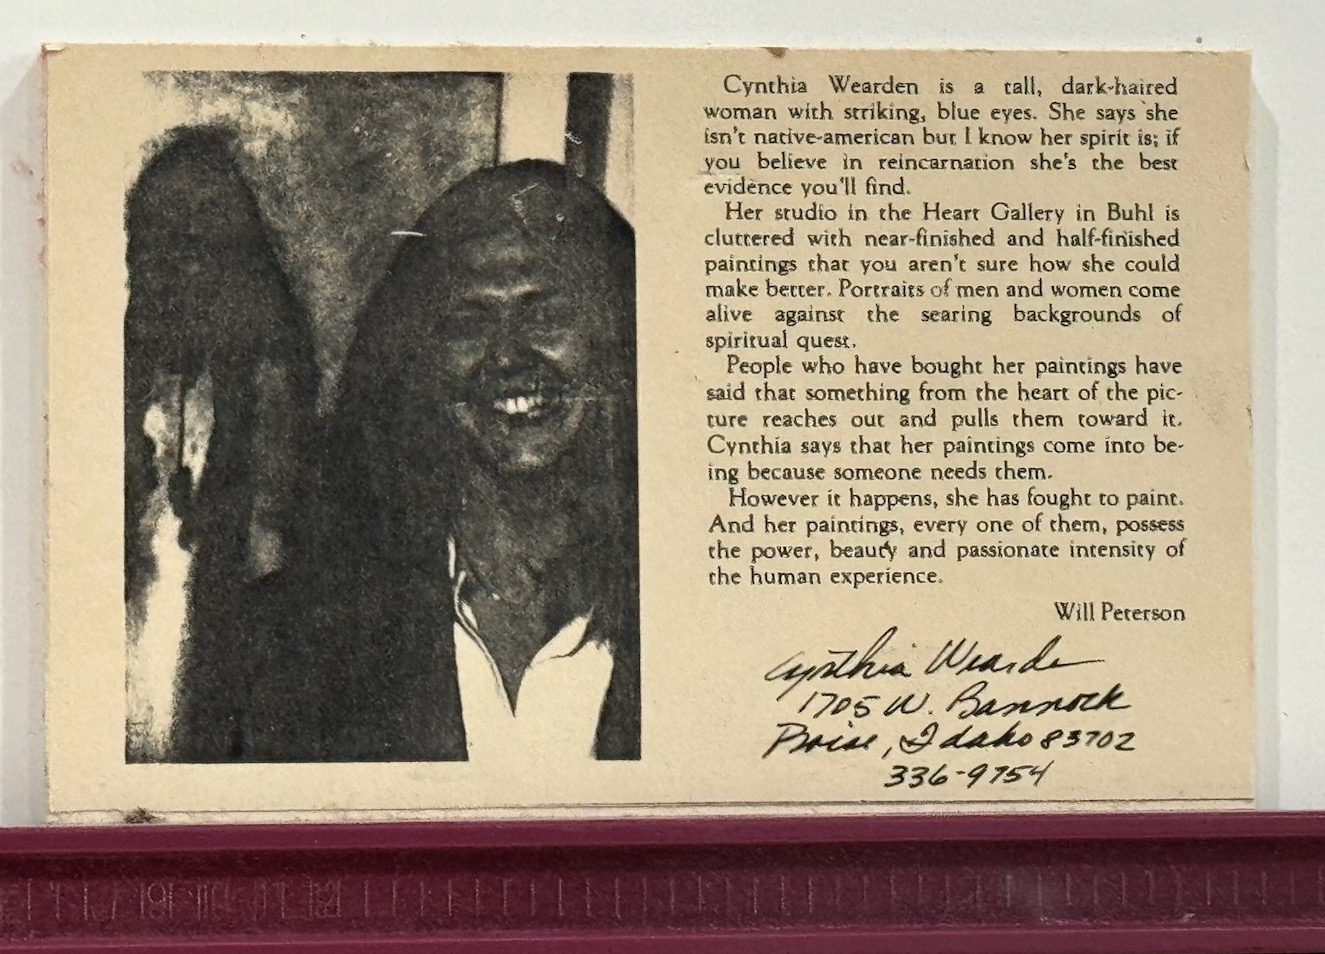 Cynthia Wearden is a tall, dark-haired
woman with striking, blue eyes. She says she
isn't native-american but I know her spirit is; if
you believe in reincarnation she's the best
evidence you'll find.
Her studio in the Heart Gallery in Buhl is
cluttered with near-finished and half-finished
paintings that you aren't sure how she could
make better. Portraits of men and women come
alive against the searing backgrounds of
spiritual quest.
People who have bought her paintings have
said that something from the heart of the pic-
ture reaches out and pulls them toward it.
Cynthia says that her paintings come into be-
ing because someone needs them.
However it happens, she has fought to paint.
And her paintings, every one of them, possess
the power, beauty and passionate intensity of
the human experience.
Will Peterson
Cynthia Wearden
1705 W. Bannock
Boise, Idaho 83702
336-9754